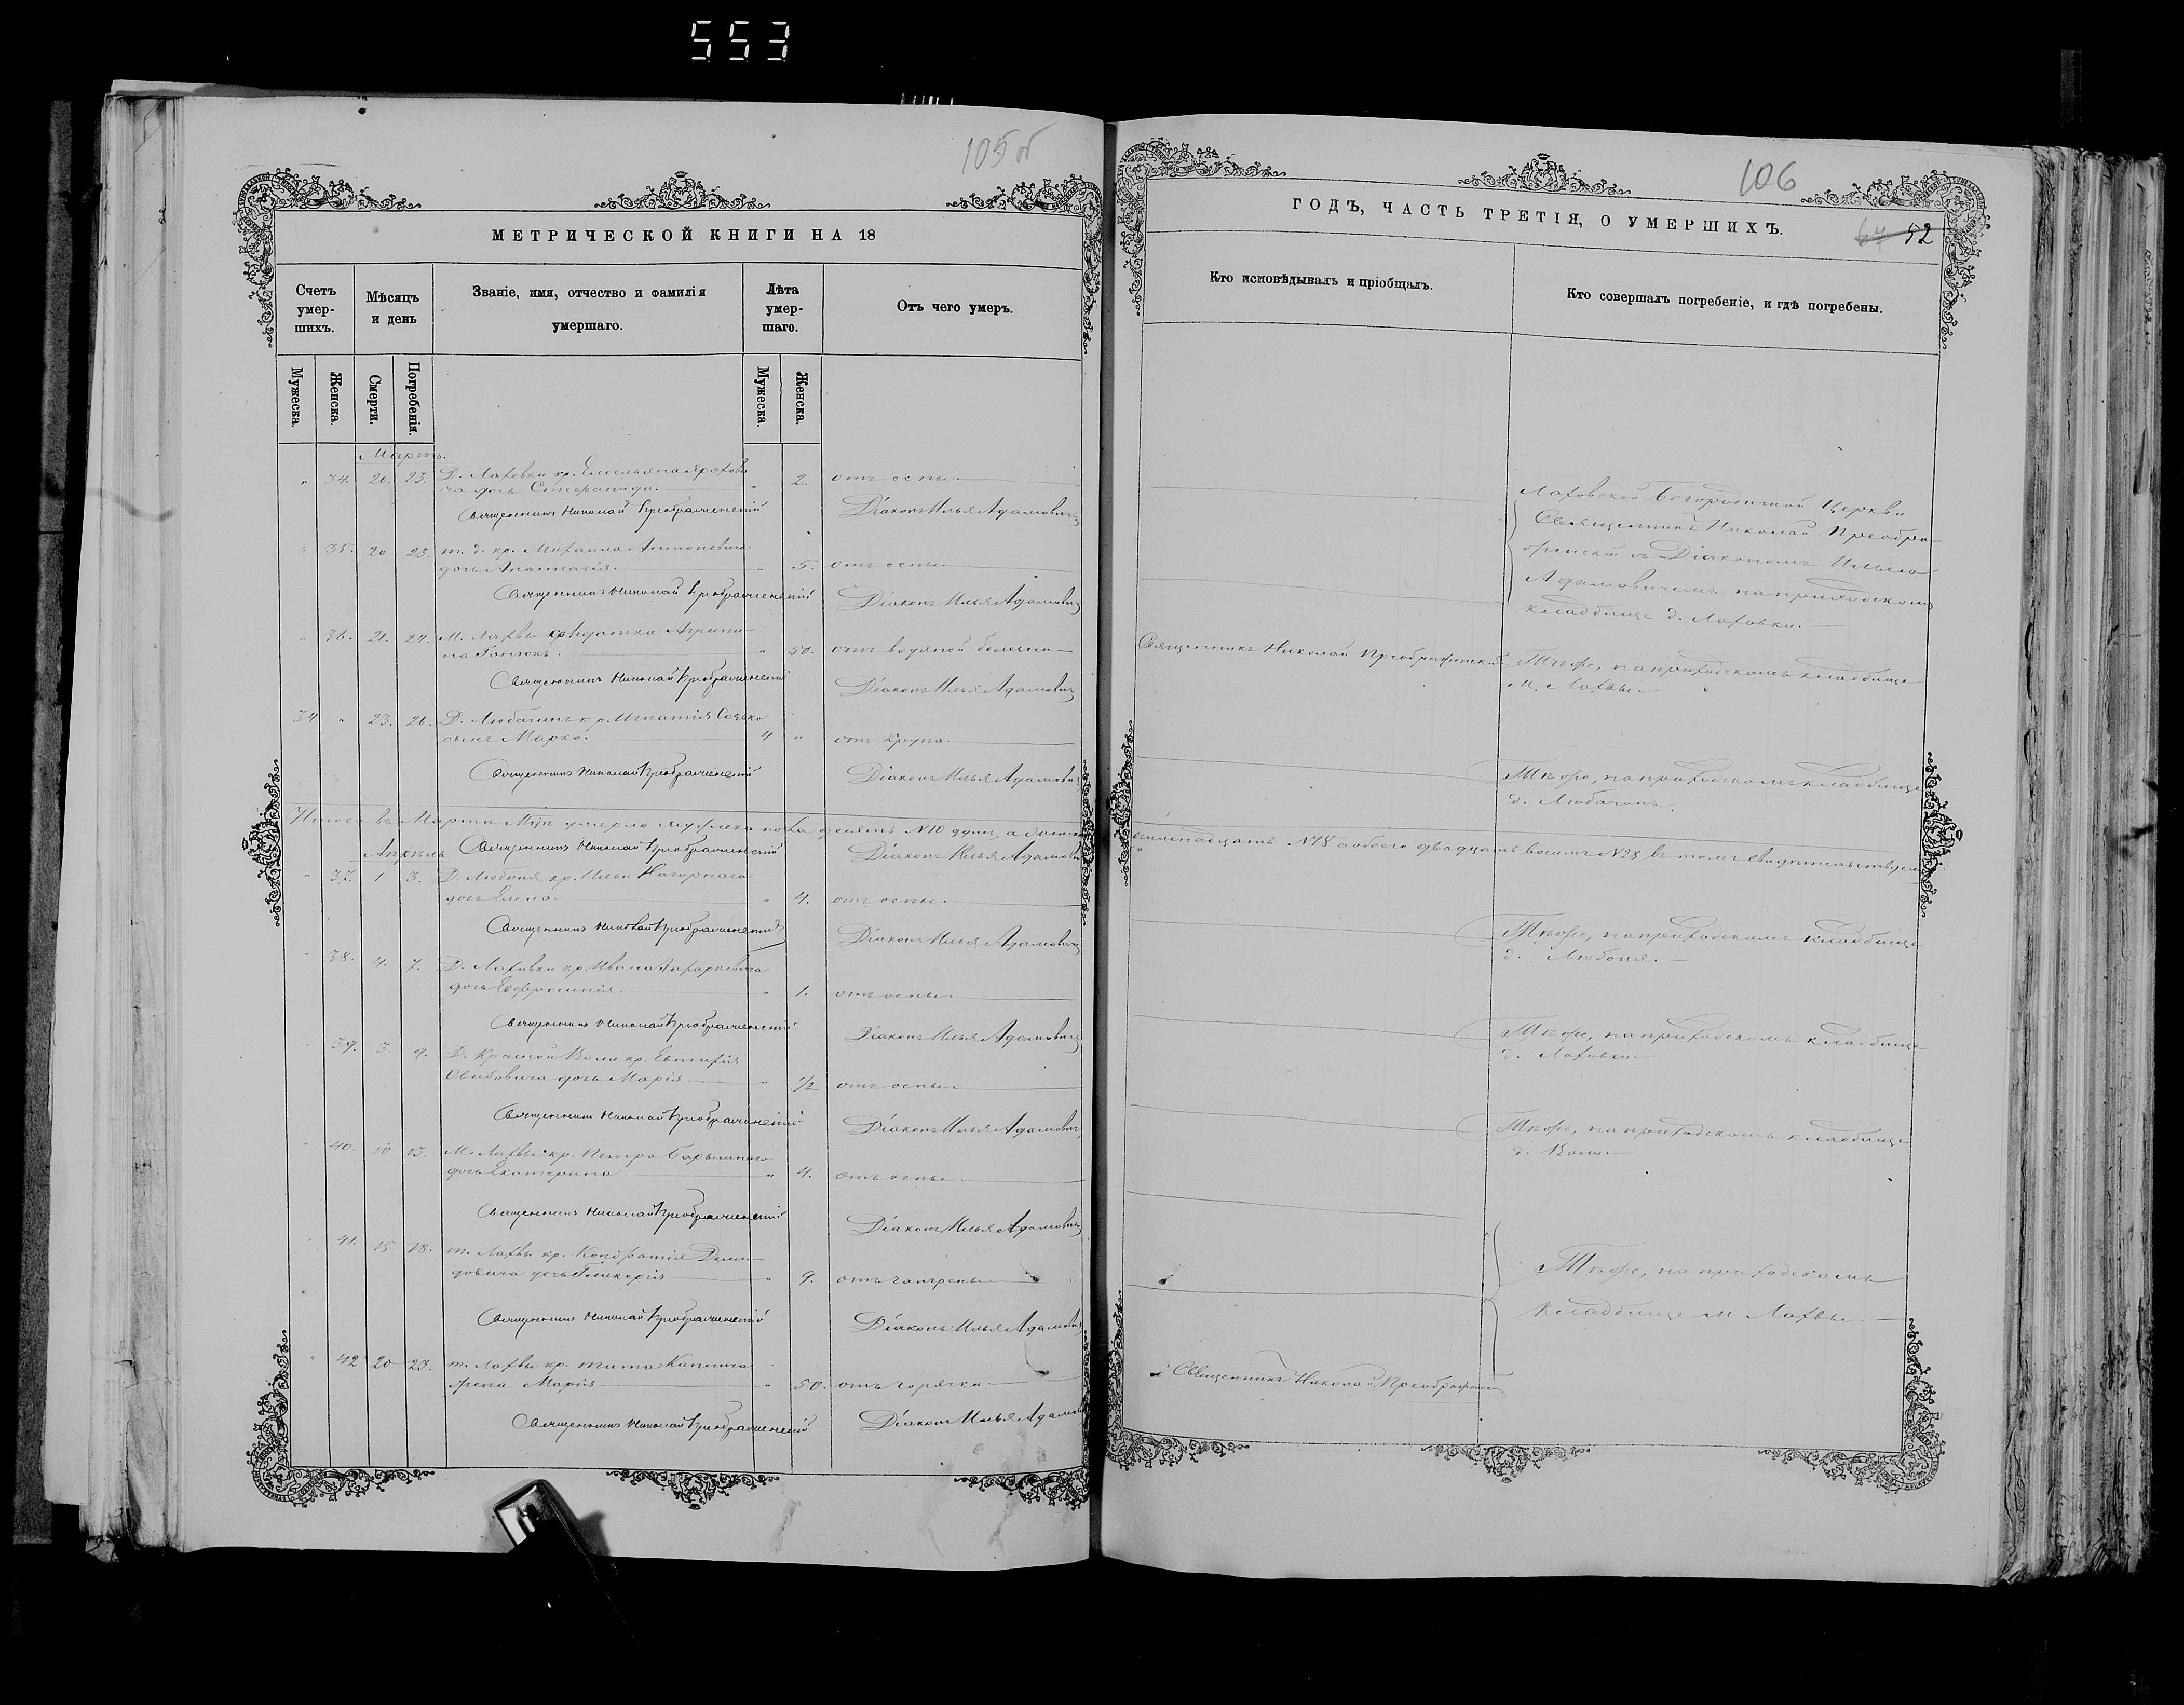 553
105об
106
МЕТРИЧЕСКОЙ КНИГИ НА 18
ГОДЪ, ЧАСТЬ ТРЕТІЯ, О УМЕРШИХЪ.
52
Счетъ умер-шихъ.
Мѣсяцъ и день
Званіе, имя, отчество и фамилія умершаго.
Лѣта умер-шаго.
Отъ чего умеръ.
Кто исповѣдывалъ и пріобщалъ.
Кто совершалъ погребеніе, и гдѣ погребены.
Мужеска.
Женска.
Смерти.
Погребенія.
Мужеска.
Женска.
Мартъ.
" 34. 20. 23. Д. Лаховки кр. Емельяна
дочь Стефанида. " 2. отъ оспы
Священникъ Николай Преображенскій Діаконъ Илья Адамовичъ
Лаховской Богородичной Церкви
Священникъ Николай Преобра-
женскій съ Діакономъ Ильею
Адамовичемъ на приходскомъ
кладбище д. Лаховки.
" 35. 20 23. т. д. кр. Михаила Антоновича
дочь Анастасія. " 5. отъ оспы
Священникъ Николай Преображенскій Діаконъ Илья Адамовичъ
" 36. 21. 24. М. Лахвы солдатка Агрипи-
на " 50. отъ водяной болезни
Священникъ Николай Преображенскій
Тѣже, на приходскомъ кладбище
м. Лахвы
Священникъ Николай Преображенскій Діаконъ Илья Адамовичъ
34 " 23. 26. Д. Любачинъ кр. Игнатія
сынъ Марко. 4 " отъ крупа.
Тѣже, на приходскомъ кладбище
д. Любачинъ.
Священникъ Николай Преображенскій Діаконъ Илья Адамовичъ
Итого въ Мартѣ М-цѣ умерло мужеска пола десять №10 душъ, а женска
осьмнадцать №18 а обоего двадцать восемь №28 въ томъ свидѣтельствуемъ
Апрѣль Священникъ Николай Преображенскій Діаконъ Илья Адамовичъ
" 37. 1. 3. Д. Любоня кр. Ильи Нагорнаго
дочь Елена. " 4. отъ оспы
Тѣже, на приходскомъ кладбище
д. Любоня.
Священникъ Николай Преображенскій Діаконъ Илья Адамовичъ
" 38. 4. 7. Д. Лаховки кр. Ивана Захаркевича
дочь Евфросинія. " 1. отъ оспы
Тѣже, на приходскомъ кладбище
д. Лаховки
Священникъ Николай Преображенскій Діаконъ Илья Адамовичъ
" 39. 3. 9. Д. Красной Воли кр. Евтихія
дочь Марія " 1/2 отъ оспы
Тѣже, на приходскомъ кладбище
д. Воли.
Священникъ Николай Преображенскій Діаконъ Илья Адамовичъ
" 40. 10 13. М. Лахвы кр. Петра
дочь Екатерина " 4. отъ оспы
Священникъ Николай Преображенскій Діаконъ Илья Адамовичъ
" 41. 15 18. м. Лахвы кр. Кондратія Деми-
довича дочь Гликерія " 9. отъ гангрены
Тѣже, на приходскомъ
кладбище м. Лахвы
Священникъ Николай Преображенскій Діаконъ Илья Адамовичъ
" 42 20 23. м. Лахвы кр. Тита
жена Марія " 50. отъ горячки
Священникъ Николай Преображенскій
Священникъ Николай Преображенскій Діаконъ Илья Адамовичъ